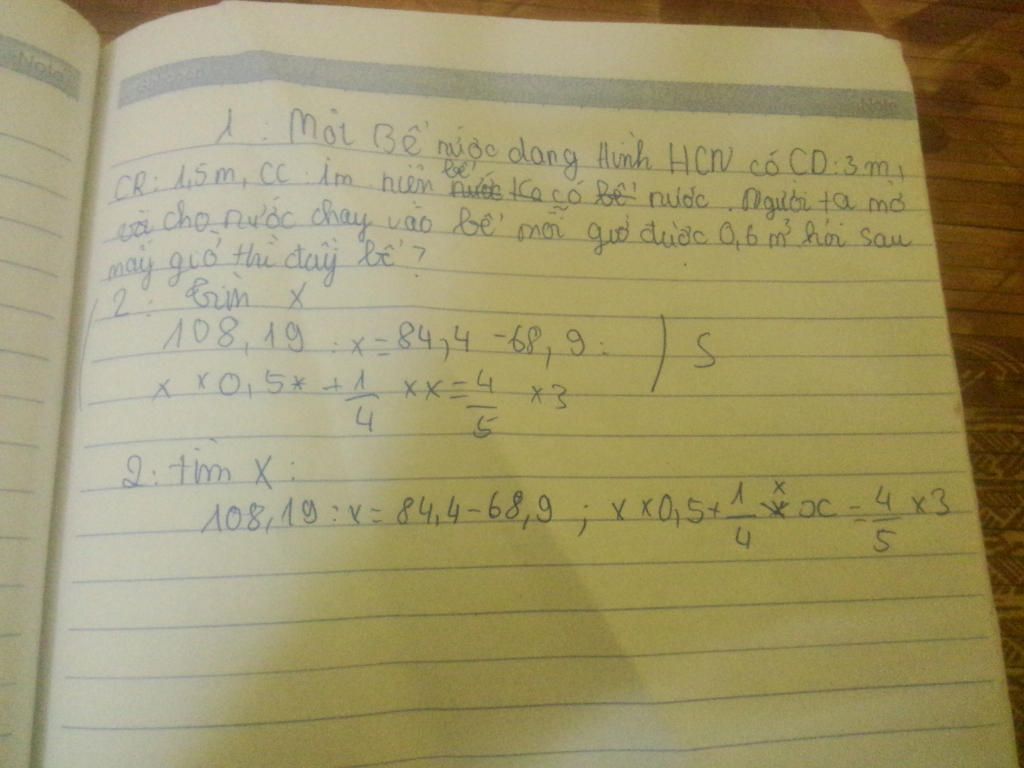 1 : Một Bể nước dạng Hình HCN có CD: 3 m,
CR: 1,5m, CC 1m hiện bể nước ta có bể nước. Người ta mở
cho nước chảy vào bể mỗi giờ được 0,6 m³ hỏi sau
mấy giờ thì đầy bể ?
2 : tìm X
108,19 : x = 84,4 - 68,9 :
x × 0,5 + 1/4 × x = 4/5 × 3
S
2 : tìm X :
108,19 : x = 84,4 - 68,9 ; x × 0,5 + 1/4 × x = 4/5 × 3